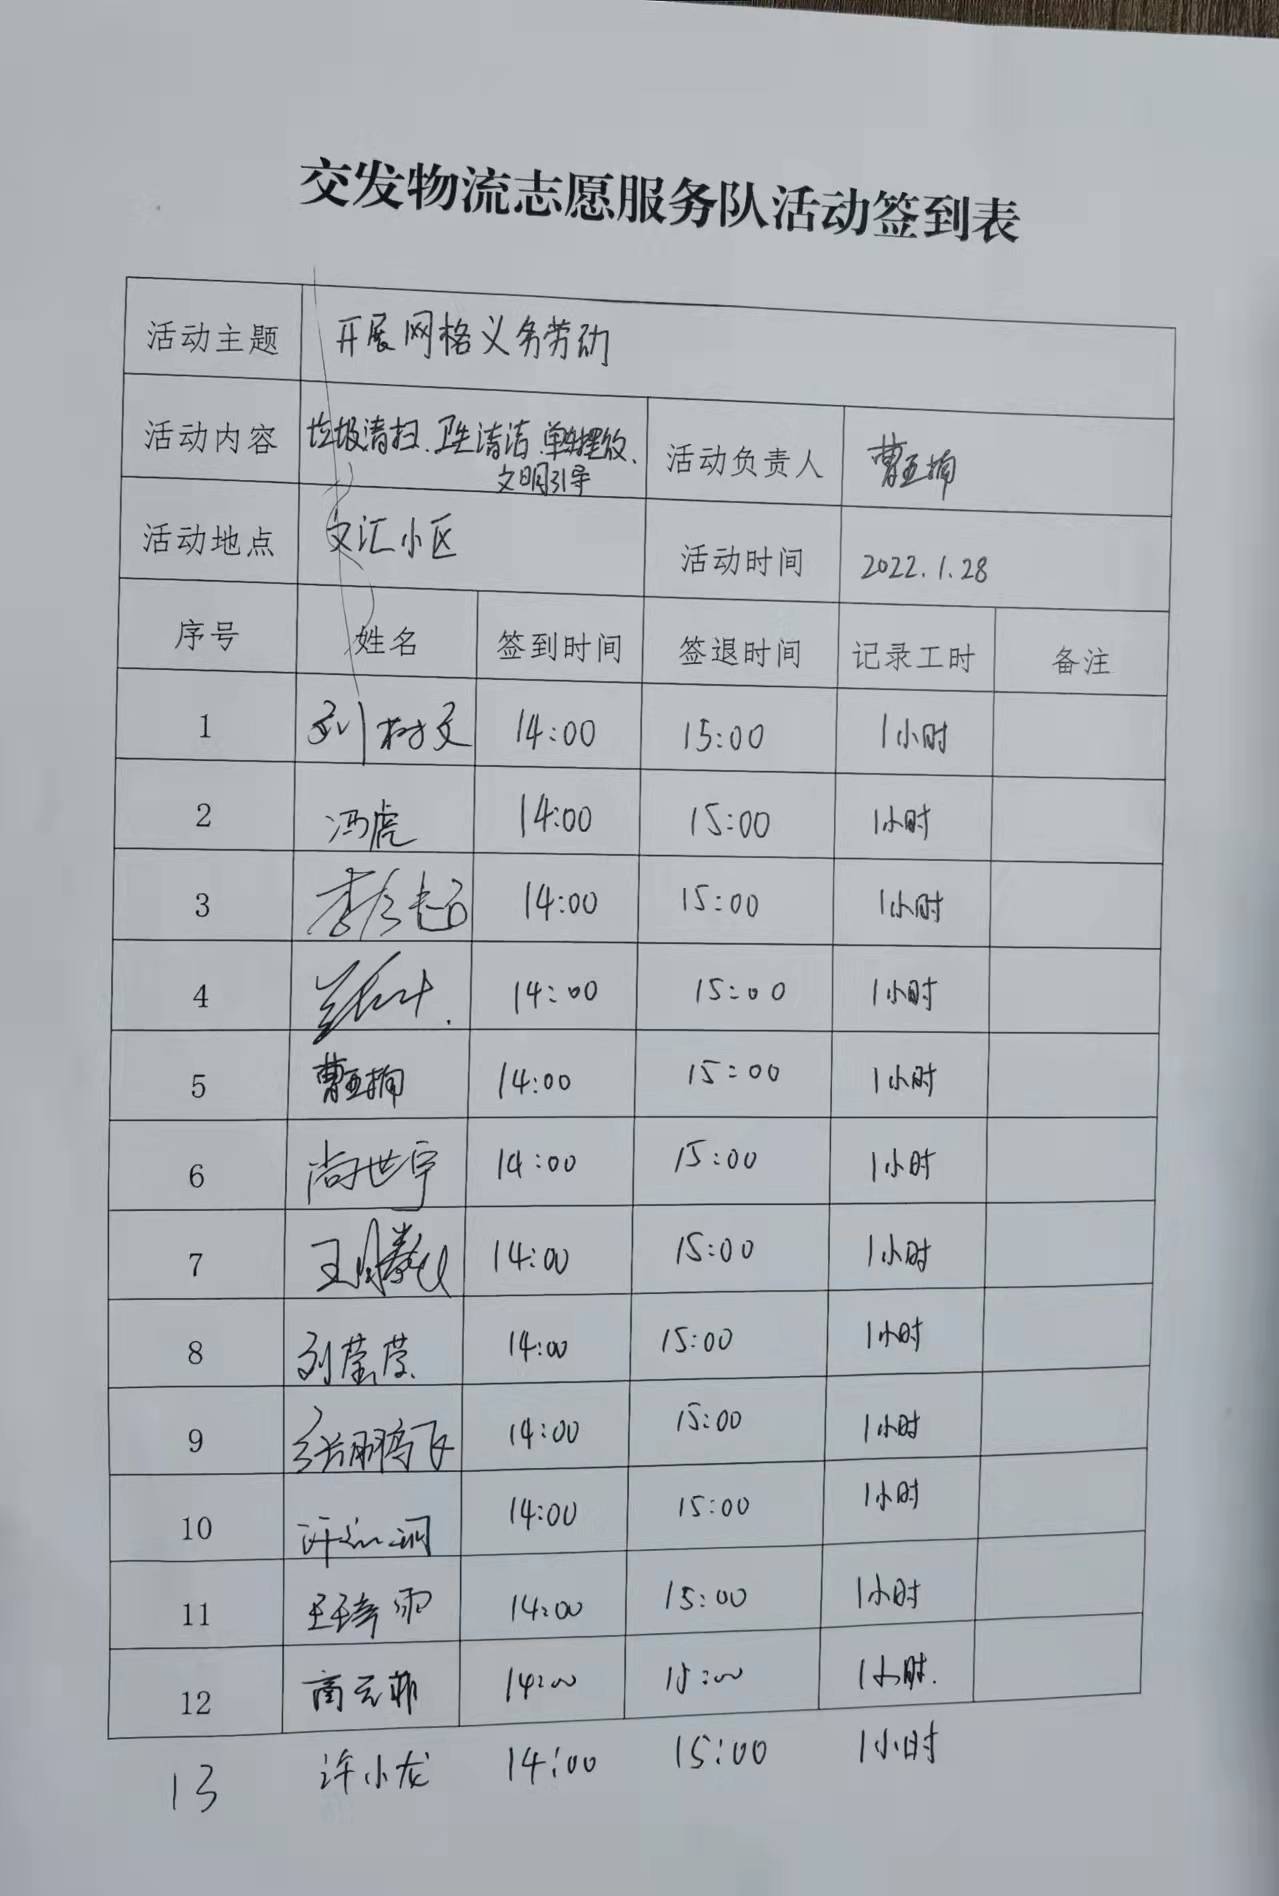 交发物流志愿服务队活动签到表
活动主题 开展网格义务劳动
活动内容 垃圾清扫、卫生清洁、单车摆放、 活动负责人 曹亚楠
文明引导
活动地点 文汇小区 活动时间 2022.1.28
序号 姓名 签到时间 签退时间 记录工时 备注
1 刘树文 14:00 15:00 1小时
2 冯虎 14:00 15:00 1小时
3 李彦超 14:00 15:00 1小时
4 14:00 15:00 1小时
5 曹亚楠 14:00 15:00 1小时
6 尚世宇 14:00 15:00 1小时
7 王 14:00 15:00 1小时
8 刘莹莹 14:00 15:00 1小时
9 张鹏飞 14:00 15:00 1小时
10 许 14:00 15:00 1小时
11 王 雨 14:00 15:00 1小时
12 商元菲 14:00 15:00 1小时.
13 许小龙 14:00 15:00 1小时